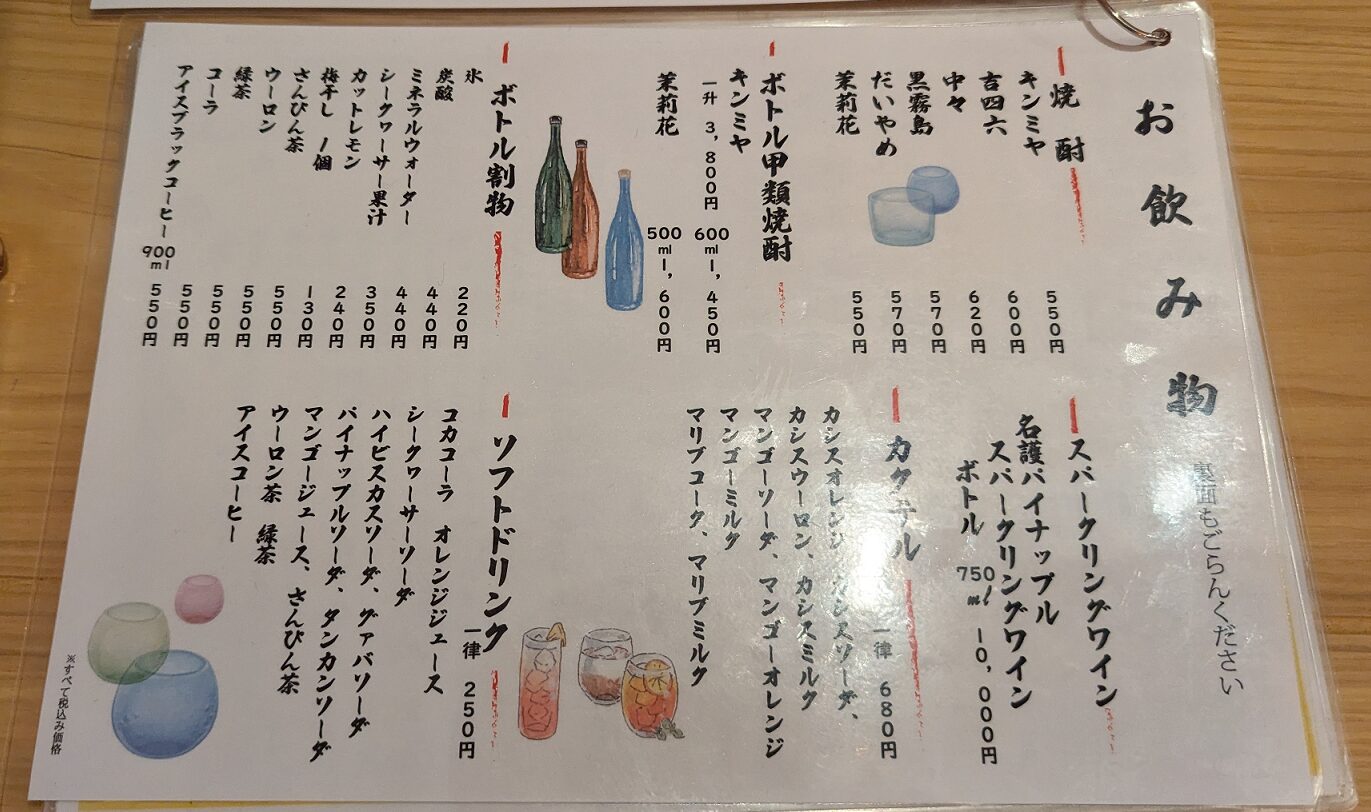 お飲み物
裏面もごらんください
焼酎
キンミヤ 550円
吉四六 600円
中々 620円
黒霧島 570円
だいやめ 570円
茉莉花 550円
ボトル甲類焼酎
キンミヤ
一升 3,800円 600ml 1,450円
茉莉花 500ml 1,600円
ボトル割物
氷 220円
炭酸 440円
ミネラルウォーター 440円
シークヮーサー果汁 350円
カットレモン 240円
梅干し 1個 130円
さんぴん茶 550円
ウーロン 550円
緑茶 550円
コーラ 550円
アイスブラックコーヒー 900ml 550円
スパークリングワイン
名護パイナップル
スパークリングワイン
ボトル 750ml 10,000円
カクテル
一律 680円
カシスオレンジ、カシスソーダ、
カシスウーロン、カシスミルク
マンゴーソーダ、マンゴーオレンジ
マンゴーミルク
マリブコーク、マリブミルク
ソフトドリンク
一律 250円
コカコーラ オレンジジュース
シークヮーサーソーダ
ハイビスカスソーダ、グァバソーダ
パイナップルソーダ、タンカンソーダ
マンゴージュース、さんぴん茶
ウーロン茶 緑茶
アイスコーヒー
※すべて税込み価格